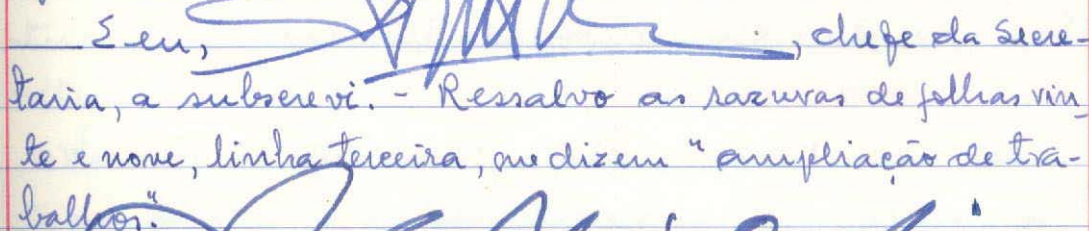 — E eu, , chefe da Secre-
taria, a subscrevi. - Ressalvo as rasuras de folhas vin
te e nove, linha terceira, que dizem "ampliação de tra-
balhos."